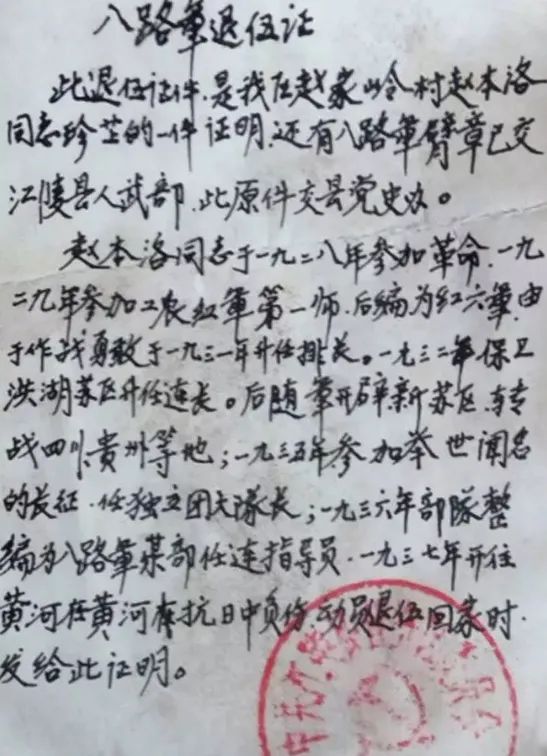 八路军退伍证
此退伍证件,是我区赵家岭村赵本洛
同志珍芷的一件证明,还有八路军臂章已交
江陵县人武部,此原件交县党史办。
赵本洛同志于一九二八年参加革命,一九
二九年参加工农红军第一师,后编为红六军,由
于作战勇敢于一九三一年升任排长。一九三二年保卫
洪湖苏区升任连长。后随军开辟新苏区,转
战四川、贵州等地;一九三五年参加举世闻名
的长征,任独立团大队长;一九三六年部队整
编为八路军某部任连指导员,一九三七年开往
黄河在黄河抗日中负伤,动员退伍回家时,
发给此证明。